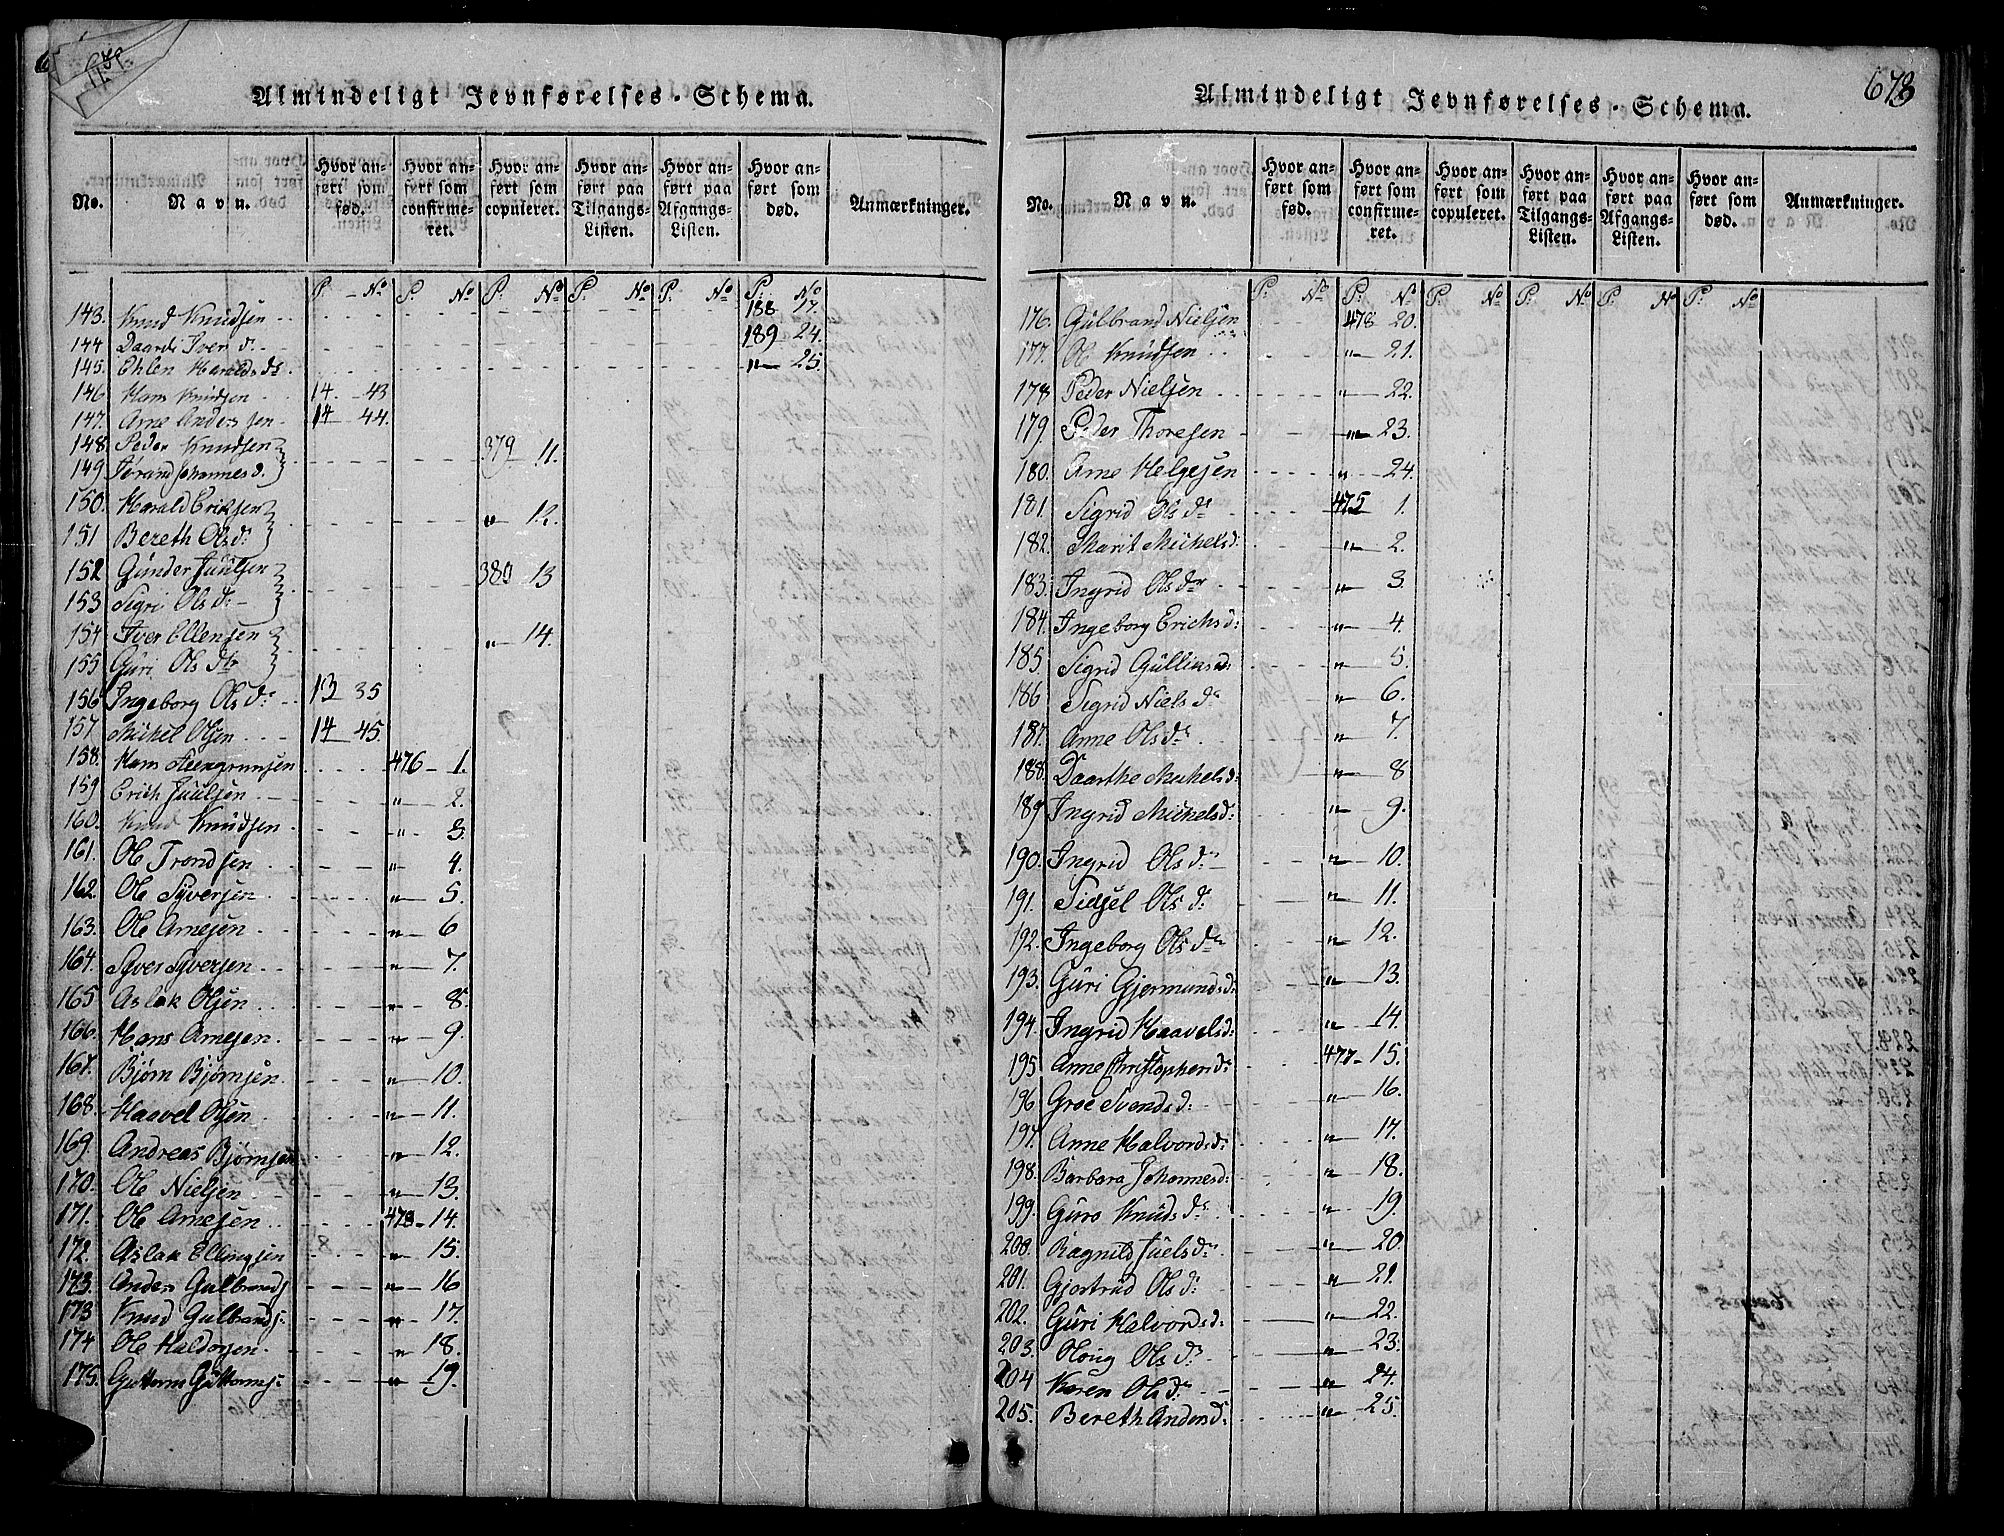 Almindeligt Jevnførelses-Schema.
No. Navn. Hvor anført som fød. Hvor anført som confirmeret. Hvor anført som copuleret. Hvor anført paa Tilgangs-Listen. Hvor anført paa Afgangs-Listen. Hvor anført som død. Anmærkninger.
P. No P. No P. No P. No P. No P. No
143. Knud Knudsen 188 17.
144 Daarde Iver d. 189 24.
145. Ehlen Haralds dr. " 25.
146 Hans Knudsen 14. 43
147. Arne Andersen 14 44.
148. Peder Knudsen 379 11.
149 Jøran Johannes d.
150. Harald Eriksen " 12.
151 Bereth Ols dr
152 Gunder Juulsen 380 13
153 Sigri Ols dr
154 Iver Ellensen " 14.
155 Guri Ols dtr
156 Ingeborg Ols dr 13 35
157 Mikel Olsen 14 45.
158. Hans Steengrimsen 476 1.
159 Erich Juulsen " 2.
160. Knud Knudsen " 3
161. Ole Trondsen " 4.
162. Ole Syversen " 5.
163. Ole Arnesen " 6
164. Syver Syversen " 7.
165 Aslak Olsen " 8.
166. Hans Arnesen " 9.
167. Bjørn Bjørnsen " 10.
168. Haavel Olsen " 11.
169. Andreas Bjørnsen " 12.
170. Ole Nielsen " 13.
171. Ole Arnesen 478 14.
172. Aslak Ellingsen " 15.
173. Anders Gulbrands " 16
173 Knud Gulbrands: " 17.
174 Ole Haldorsen " 18.
175. Guttorm Guttorms: " 19.
678
Almindeligt Jevnførelses-Schema.
No. Navn. Hvor anført som fød. Hvor anført som confirmeret. Hvor anført som copuleret. Hvor anført paa Tilgangs-Listen. Hvor anført paa Afgangs-Listen. Hvor anført som død. Anmærkninger.
P. No P. No P. No P. No P. No P. No
176. Gulbrand Nielsen 478 20.
177. Ole Knudsen " 21.
178 Peder Nielsen " 22.
179. Peder Thoresen " 23.
180. Arne Helgesen " 24.
181. Sigrid Ols dr 475 1.
182. Marit Mikels d: " 2.
183. Ingrid Ols dr " 3.
184. Ingeborg Erichs d: " 4.
185. Sigrid Gulliks d: " 5.
186 Sigrid Niels dr " 6.
187. Anne Ols dr " 7.
188. Daarthe Mikels d: " 8
189 Ingrid Mikels d: " 9.
190. Ingrid Ols dr " 10.
191. Sidsel Ols dr " 11.
192. Ingeborg Ols dr " 12.
193. Guri Gjermunds d: " 13.
194. Ingrid Haavels d: " 14.
195 Anne Christophers d: 477 15.
196 Groe Svends d: " 16.
197. Anne Halvords d: " 17.
198. Barbara Johannes d: " 18.
199. Guro Knuds dr " 19.
200. Ragnild Juels dr " 20.
201. Gjertrud Ols dr " 21.
202. Guri Halvords d: " 22.
203. Oloug Ols dr " 23.
204 Karen Ols dr " 24.
205. Bereth Anders d: " 25.